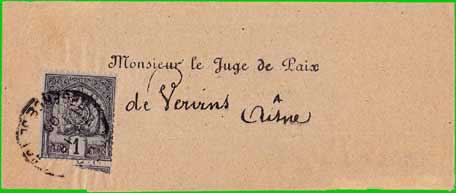 Monsieur le Juge de Paix
de Vervins
Aisne
1